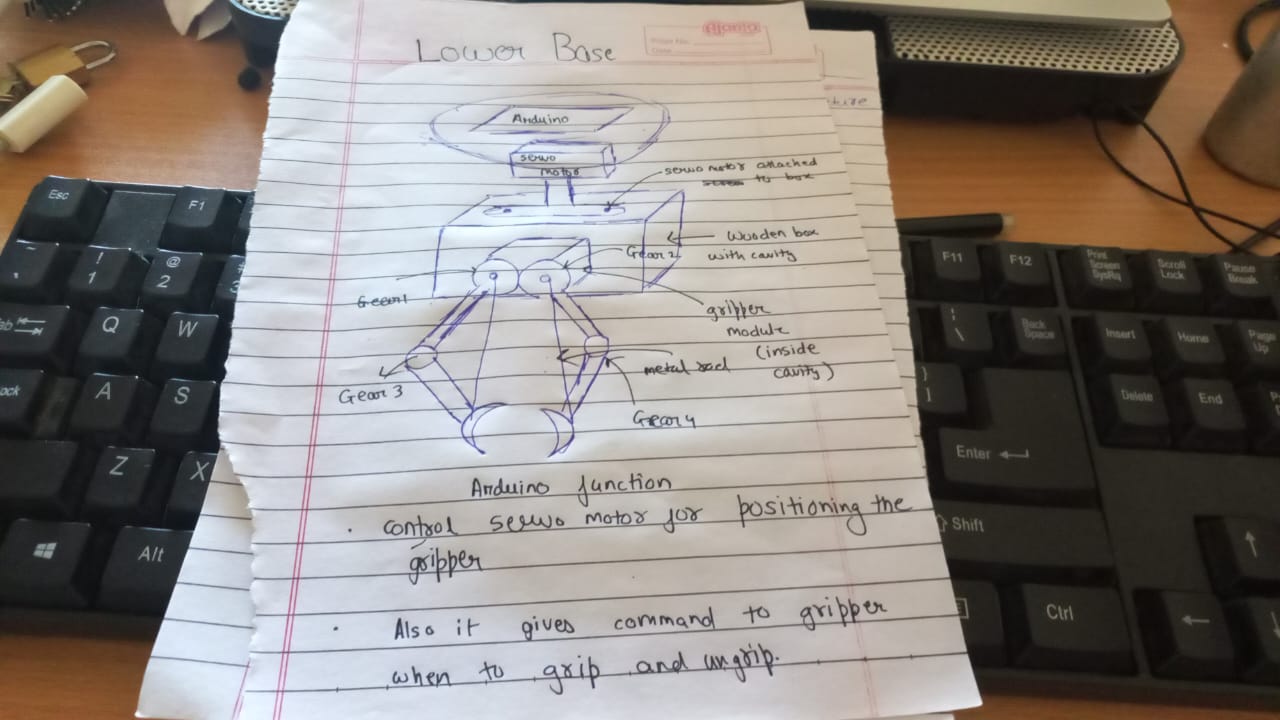 Lower Base
Page No.
Date
Arduino
servo
motor
servo motor attached
to box
Wooden box
with cavity
Gear 2
Gear 1
gripper
module
(inside
cavity)
metal rod
Gear 3
Gear 4
Arduino function
. control servo motor for positioning the
gripper
. Also it gives command to gripper
when to grip and ungrip.
Esc
F1
! 1
@ 2
Tab
Q
W
A
S
Z
X
Alt
F11
F12
Print Screen SysRq
Scroll Lock
Pause Break
| \
Back Space
Insert
Home
Page Up
} ]
Delete
End
Enter
Shift
Ctrl